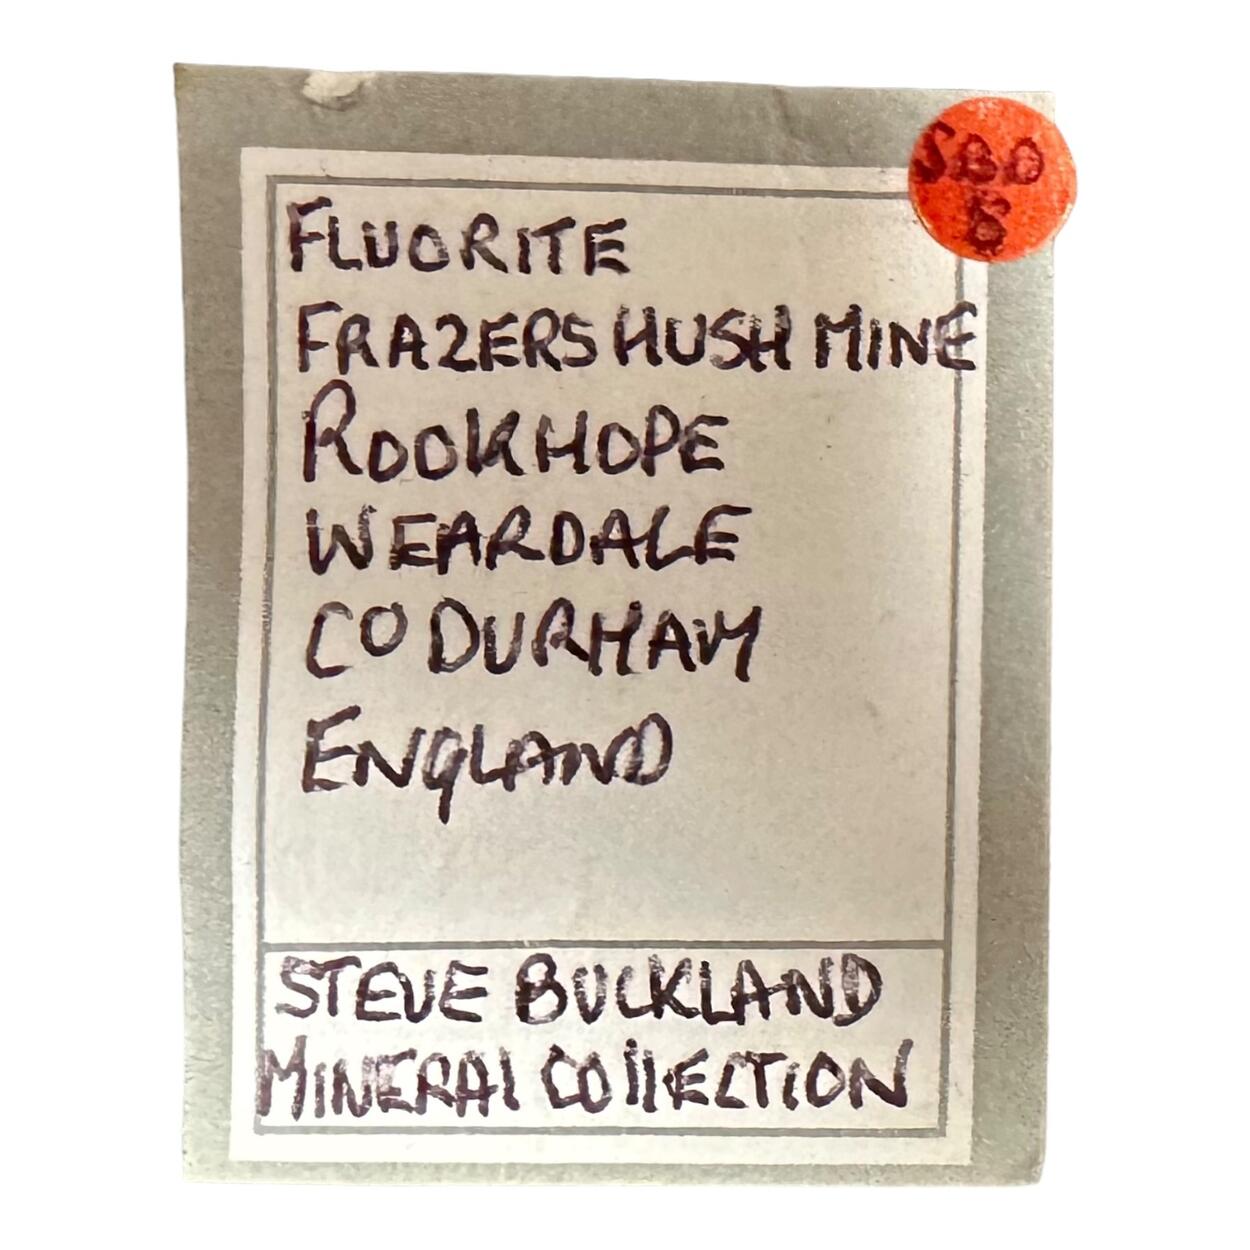 FLUORITE
FRAZERS HUSH MINE
ROOKHOPE
WEARDALE
CO DURHAM
ENGLAND
STEVE BUCKLAND
MINERAl COllECTION